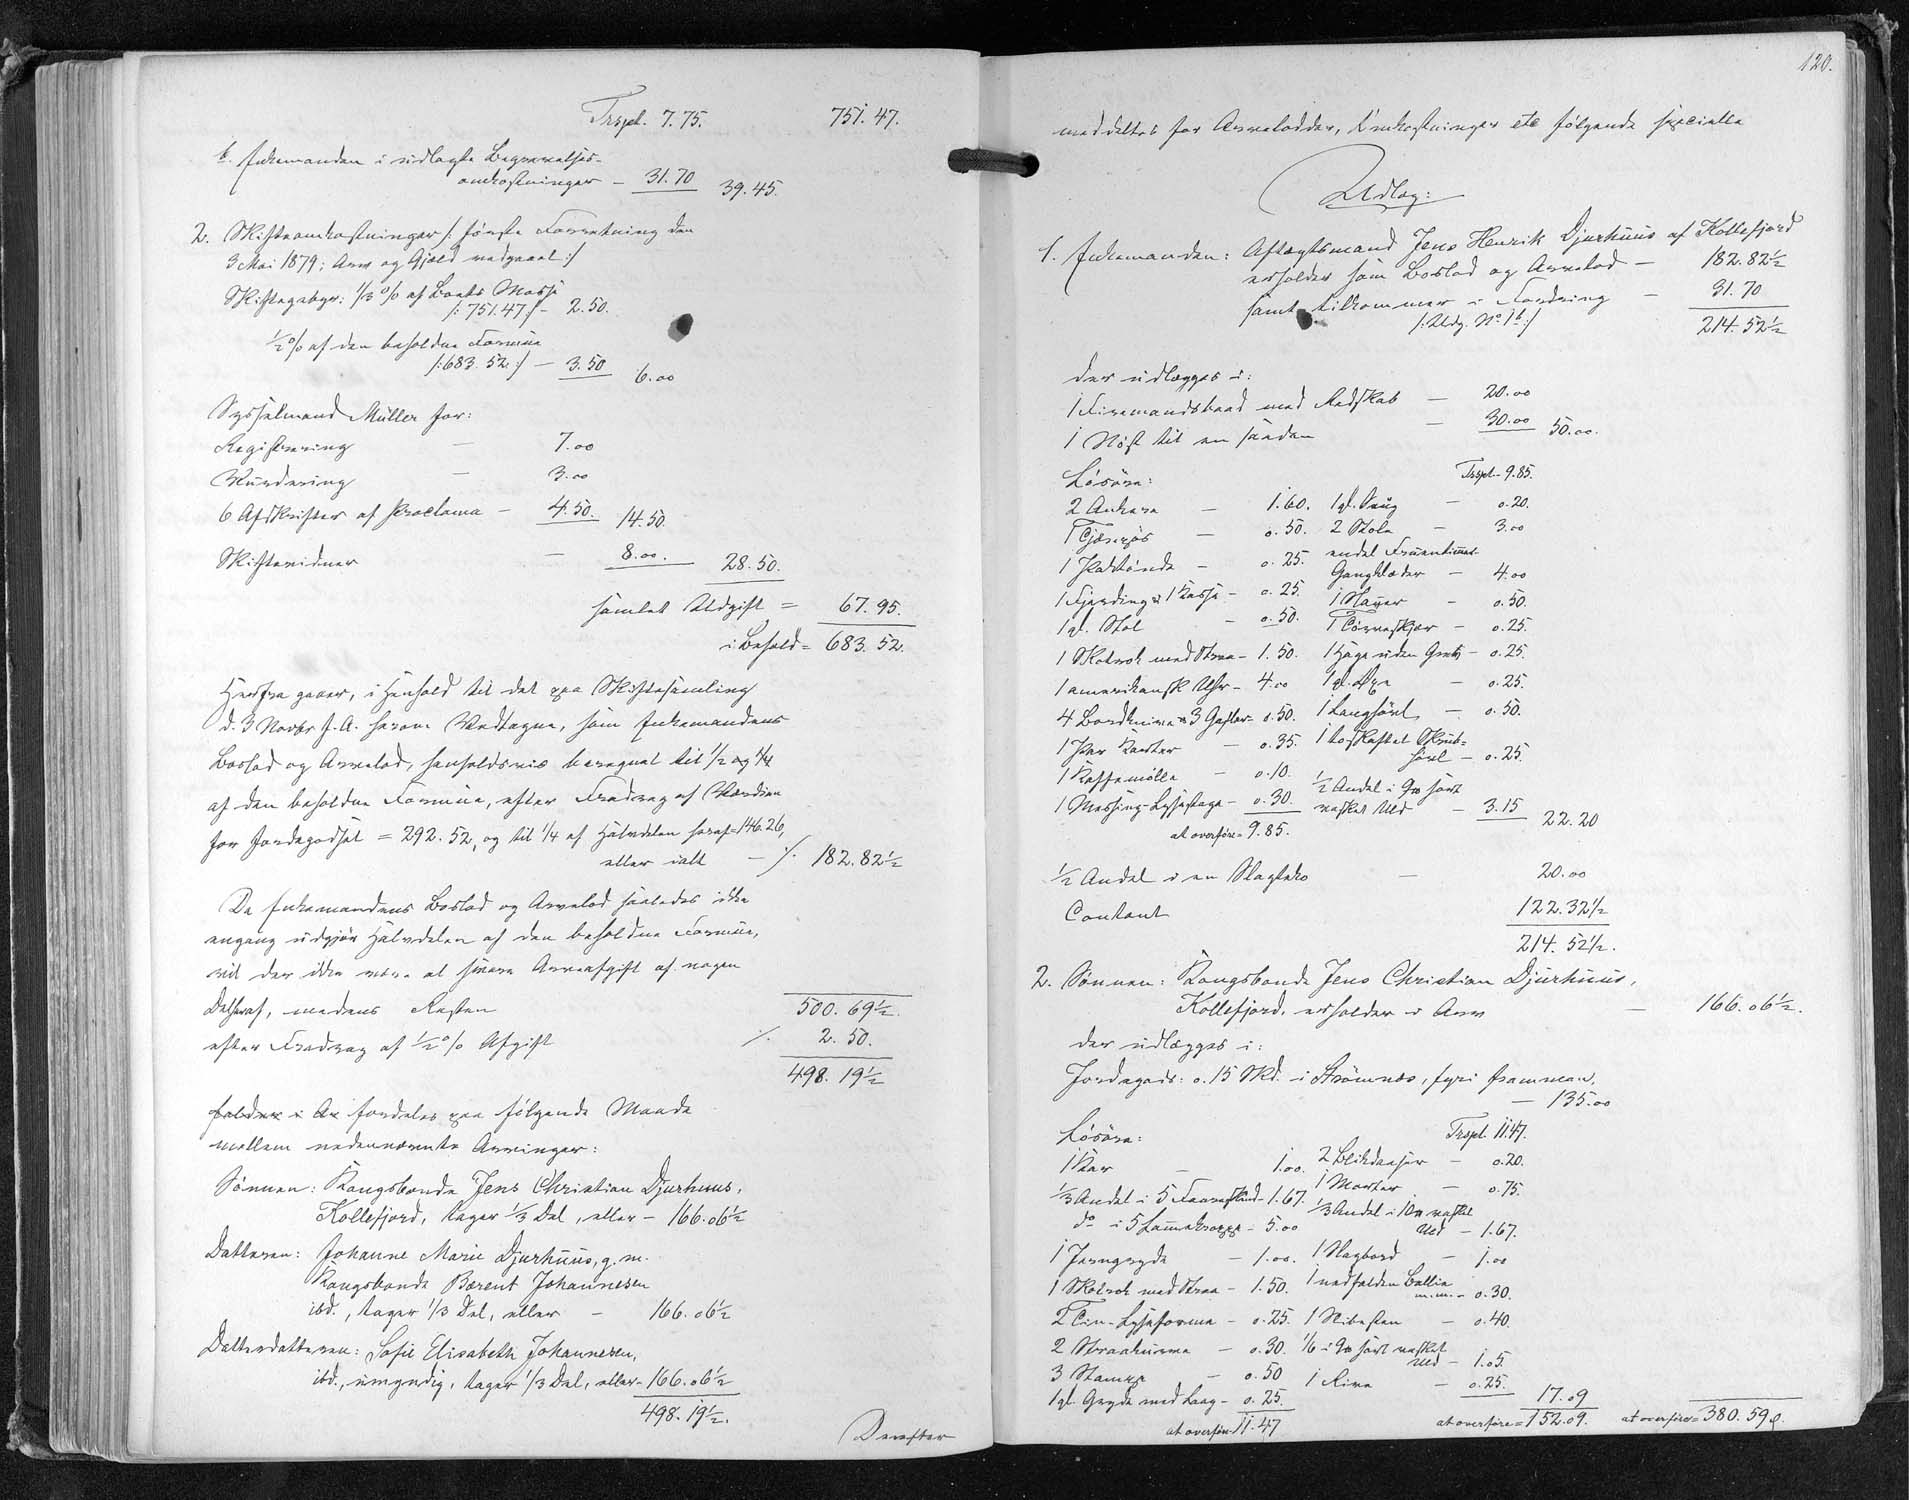 Trspt. 7.75. 751.47.
b. Enkemanden i udlagte Begravelses-
omkostninger – 31.70 39.45.
2. Skifteomkostninger /: første Forretning den
3 Mai 1879; Arv og Gjæld vedgaaet :/
Skiftegebyr: 1/3 % af Boets Masse
/: 751.47 :/ – 2.50.
1/2 % af den beholdne Formue
/: 683.52 :/ – 3.50 6.00
Sysselmand Müller for:
Registrering – 7.00
Vurdering – 3.00
6 Afskrifter af Proclama – 4.50. 14.50.
Skiftevidner – 8.00. 28.50.
samlet Udgift = 67.95.
i Behold = 683.52.
Herfra gaaer, i Henhold til det paa Skiftesamling
d. 3 Novbr f. A. herom Vedtagne, som Enkemandens
Boslod og Arvelod, henholdsvis beregnet til 1/2 og 1/4
af den beholdne Formue, efter Fradrag af Værdien
for Jordegodset = 292.52, og til 1/4 af Halvdelen heraf = 146.26,
eller ialt – ./. 182.82 1/2
Da Enkemandens Boslod og Arvelod saaledes ikke
engang udgjør Halvdelen af den beholdne Formue,
vil der ikke være at svare Arveafgift af nogen
Del heraf, medens Resten 500.69 1/2.
efter Fradrag af 1/2 % Afgift ./. 2.50.
498.19 1/2
falder i Ar fordeles paa følgende Maade
mellem nedennævnte Arvinger:
Sønnen: Kongsbonde Jens Christian Djurhuus,
Kollefjord, tager 1/3 Del, eller – 166.06 1/2
Datteren: Johanne Marie Djurhuus, g. m.
Kongsbonde Bærent Johannesen
ibd., tager 1/3 Del, eller – 166.06 1/2
Datterdatteren: Sofie Elisabeth Johannesen,
ibd., umyndig, tager 1/3 Del, eller – 166.06 1/2
498.19 1/2.
Derefter
120.
meddeltes for Arvelodder, Omkostninger etc følgende specielle
Udlæg:
1. Enkemanden: Aftægtsmand Jens Henrik Djurhuus af Kollefjord
erholder som Boslod og Arvelod – 182.82 1/2
samt tilkommer i Fordring – 31.70
/: Udg. No 1 b :/ 214.52 1/2
der udlægges i:
1 Firemandsbaad med Redskab – 20.00
1 Nøst til en saadan – 30.00 50.00.
Løsøre: Trspt – 9.85.
2 Ankere – 1.60. 1 gl. – 0.20.
1 – 0.50. 2 Stole – 3.00
1 – 0.25. endel Fruentimmer-
Gangklæder – 4.00
1 Fjerding & 1 Kasse – 0.25. 1 – 0.50.
1 gl. Stol – 0.50. 1 Tørveskjær – 0.25.
1 Skotrok med – 1.50. 1 uden – 0.25.
1 amerikansk Uhr – 4.00 1 gl. Øxe – 0.25.
4 Bordknive & 3 Gafler – 0.50. 1 Langhøvl – 0.50.
1 Par Karter – 0.35. 1 toskaftet Skrub-
høvl – 0.25.
1 Kaffemølle – 0.10. 1/2 Andel i sort
1 Messing-Lysestage – 0.30. vasket Uld – 3.15 22.20
at overføre = 9.85.
1/2 Andel i en Slagteko – 20.00
Contant 122.32 1/2
214.52 1/2.
2. Sønnen: Kongsbonde Jens Christian Djurhuus,
Kollefjord, erholder i Arv – 166.06 1/2.
der udlægges i:
Jordegods: 0.15 Skd. i Strømnæs, fyri framman,
– 135.00
Løsøre: Trspt. 11.47.
1 Kar – 1.00. 2 Blikdaaser – 0.20.
1/3 Andel i 5 Faareskind – 1.67. 1 Morter – 0.75.
do i 5 Lammekroppe – 5.00 1/3 Andel i vasket
Uld – 1.67.
1 Jerngryde – 1.00. 1 Slagbord – 1.00
1 Skotrok med – 1.50. 1 nedfalden Ballie
m.m. – 0.30.
2 Tin-Lyseforme – 0.25. 1 Slibesten – 0.40.
2 – 0.30. 1/6 i sort vasket
Uld – 1.05.
3 Stampe – 0.50 1 Rive – 0.25. 17.09
1 gl. Gryde med Laag – 0.25.
at overføre 11.47 at overføre = 152.09. at overføres = 380.59